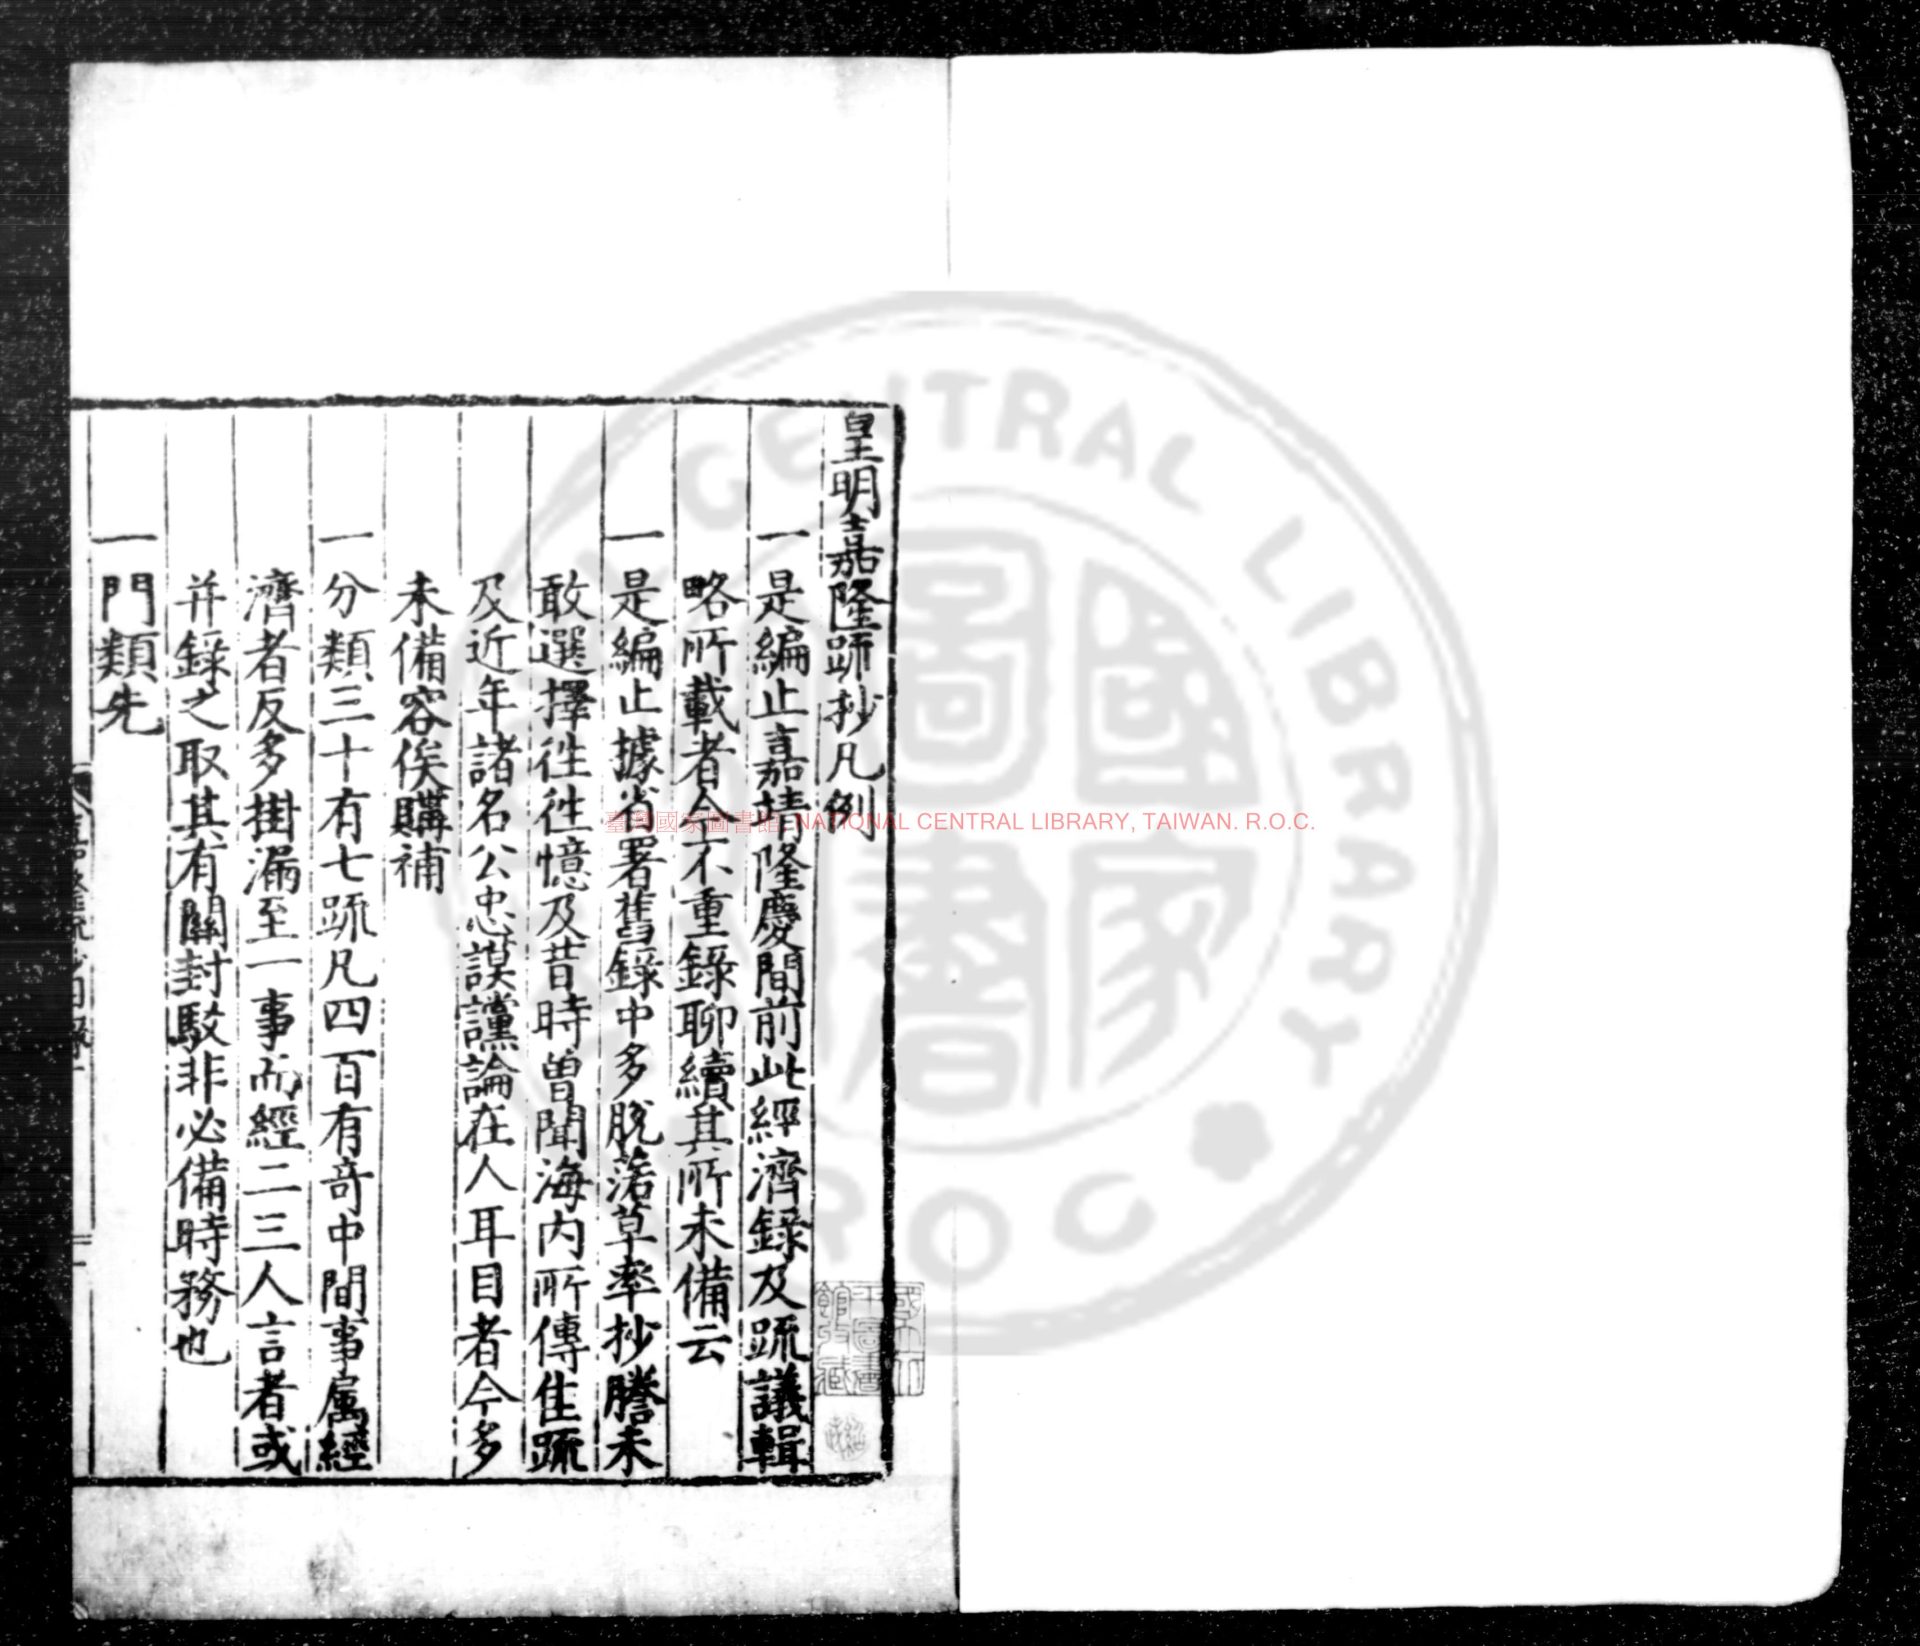 皇明嘉隆疏抄凡例
一是編止嘉靖隆慶間前此經濟錄及疏議輯
略所載者今不重錄聊續其所未備云
一是編止據省署舊錄中多脫落草率抄謄未
敢選擇徃徃憶及昔時曾聞海内所傳佳疏
及近年諸名公忠謨讜論在人耳目者今多
未備容俟購補
一分類三十有七疏凡四百有奇中間事属經
濟者反多掛漏至一事而經二三人言者或
并錄之取其有關封駁非必備時務也
一門類先
臺灣國家圖書館, NATIONAL CENTRAL LIBRARY, TAIWAN. R.O.C.
CENTRAL LIBRARY
R.O.C.
國家圖書